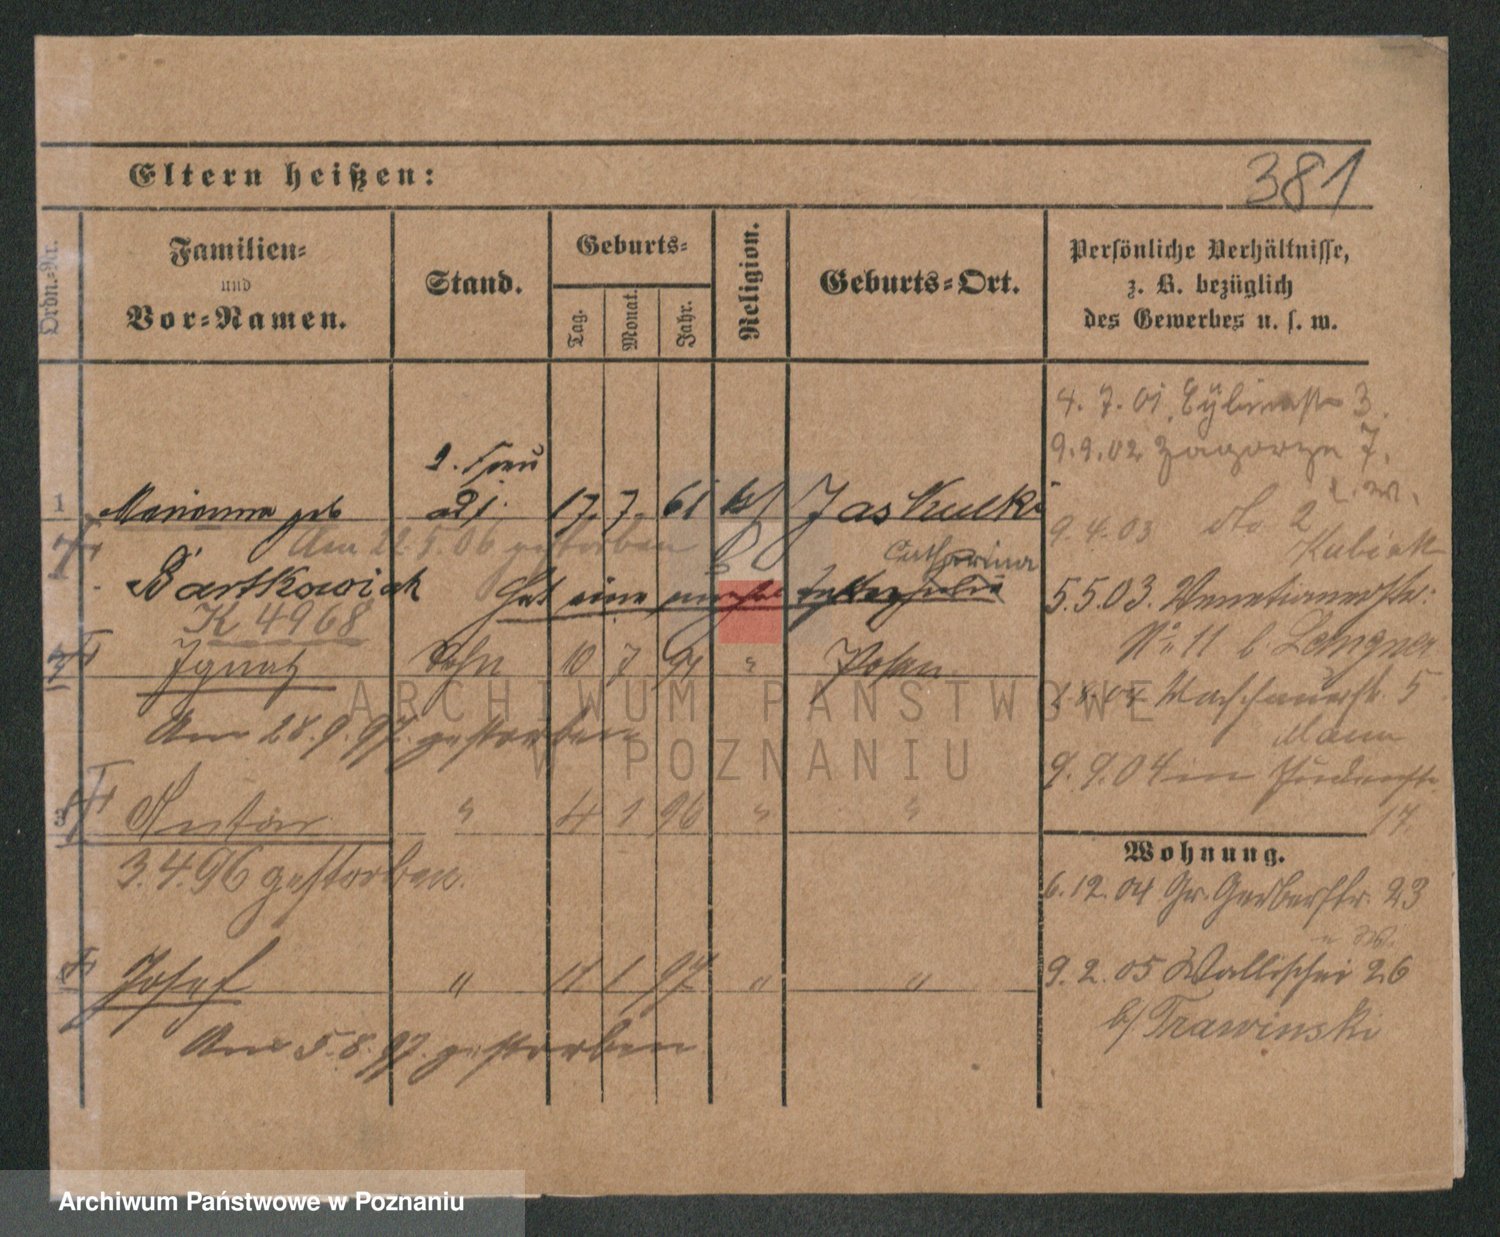 381
Eltern heißen:
Ordn.-Nr.
Familien-
und
Vor-Namen.
Stand.
Geburts-
Tag.
Monat.
Jahr.
Religion.
Geburts-Ort.
Persönliche Verhältnisse,
z. B. bezüglich
des Gewerbes u. s. w.
4. 7. 01. 3.
9.9.02 Zagorze 7.
2. Frau
1 Marianna geb 17. 7. 61 Jaskulki
9. 4. 03 dto 2
Kubiak
Am 22.5.06 gestorben
Catharina
Bartkowiak Hat eine
5.5.03. Venetianerstr:
K 4968
No 11 b.
2 Ignatz Sohn 10 7 94 " Posen
5
Am 28.9.97. gestorben
Mann
9. 9. 04 in
17.
3 Anton " 4 1 96 " "
3.4.96 gestorben.
Wohnung.
6. 12. 04 Gr. Gerberstr. 23
Josef " 11. 1 97 " "
9. 2. 05 Wallischei 26
b/ Trawinski
Am 5.8.97. gestorben
ARCHIWUM PAŃSTWOWE
W POZNANIU
Archiwum Państwowe w Poznaniu